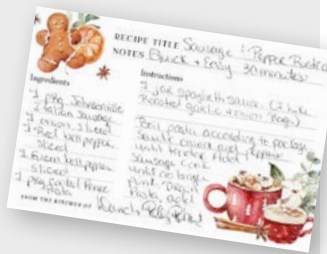 RECIPE TITLE Sausage & Pepper
NOTES Quick + Easy 30 minutes
Ingredients
1 pkg Johnsonville
Italian Sausage
1 onion, sliced
1 Red bell pepper
sliced
1 Green bell pepper
sliced
1 pkg
Pasta
Instructions
1 jar spaghetti sauce
Roasted garlic + onion
Boil pasta according to package
Sauté onions and peppers
until tender. Add
Sausage Cook
until no longer
pink. Drain
Pasta, add
FROM THE KITCHEN OF